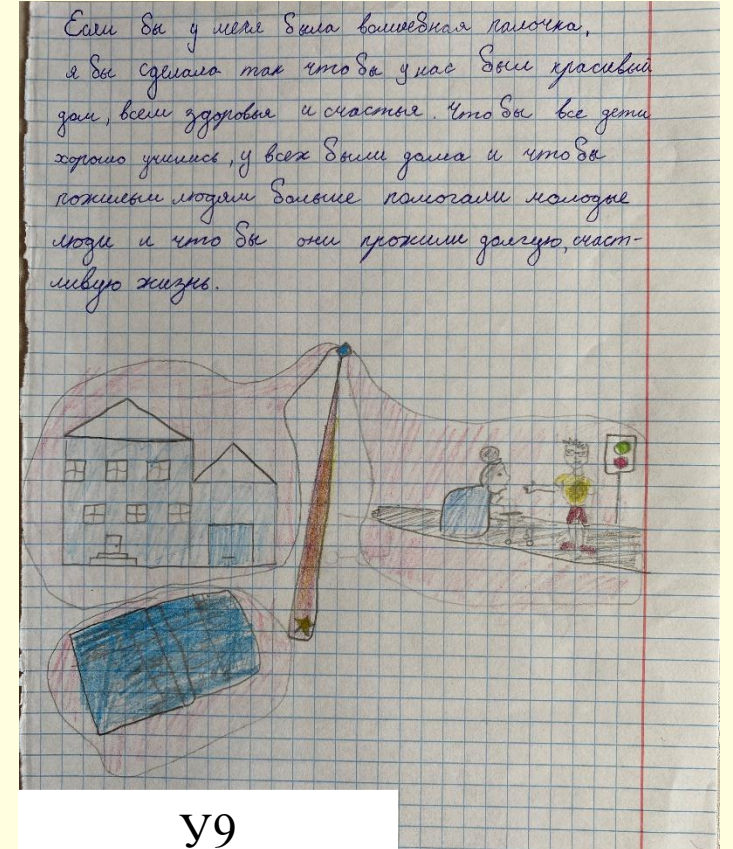 Если бы у меня была волшебная палочка,
я бы сделала так что бы у нас был красивый
дом, всем здоровья и счастья. Что бы все дети
хорошо учились, у всех были дома и что бы
пожилым людям больше помогали молодые
люди и что бы они прожили долгую, счаст-
ливую жизнь.
У9